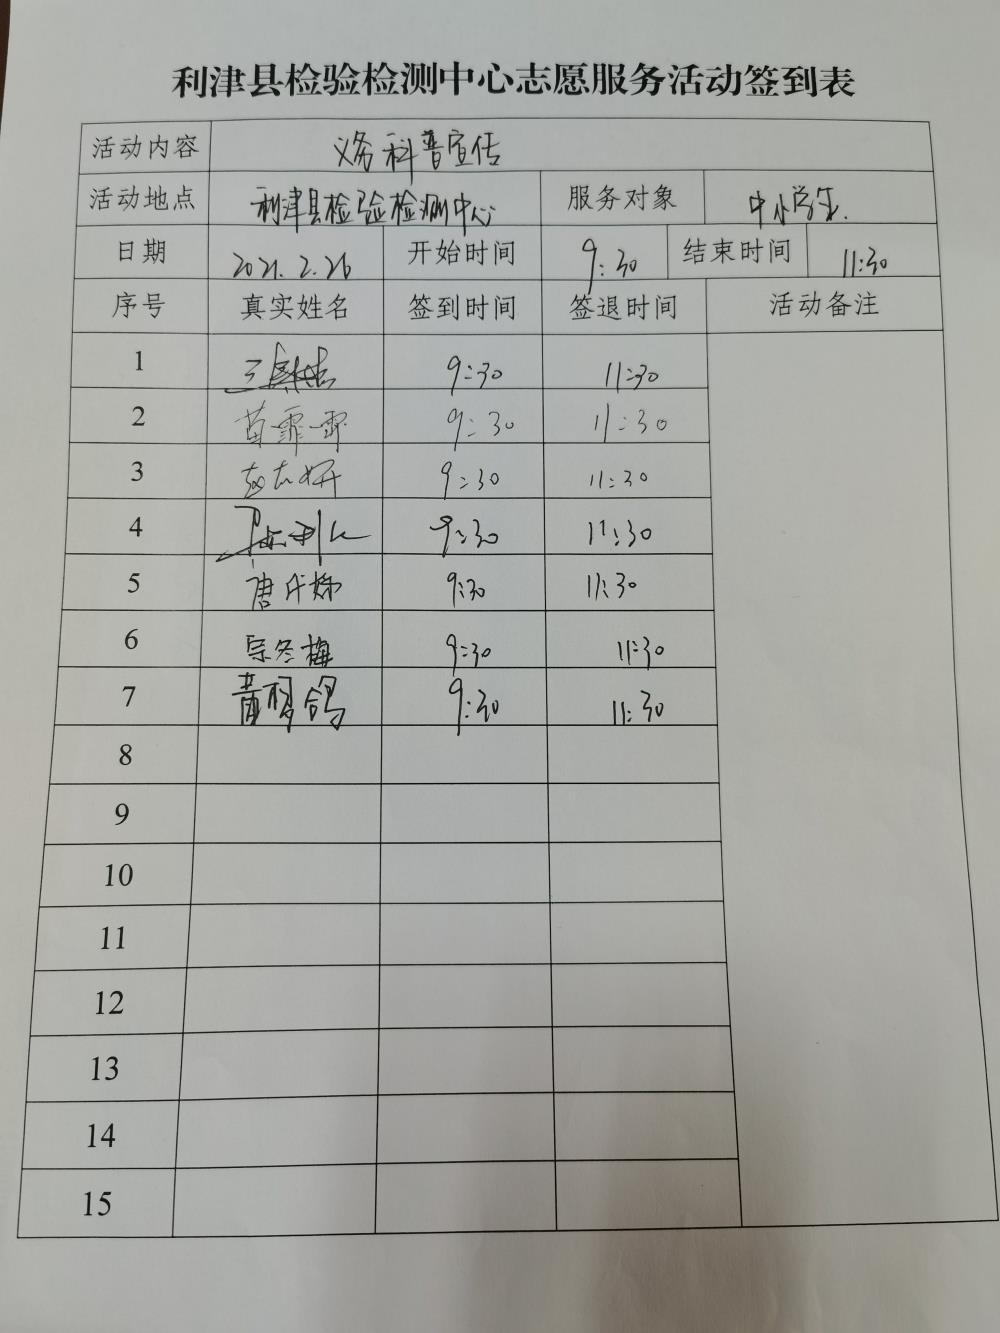 利津县检验检测中心志愿服务活动签到表
活动内容 义务科普宣传
活动地点 利津县检验检测中心 服务对象 中小学生.
日期 2021.2.26 开始时间 9:30 结束时间 11:30
序号 真实姓名 签到时间 签退时间 活动备注
1 9:30 11:30
2 苗霏霏 9:30 11:30
3 9:30 11:30
4 9:30 11:30
5 9:30 11:30
6 宗冬梅 9:30 11:30
7 9:30 11:30
8
9
10
11
12
13
14
15